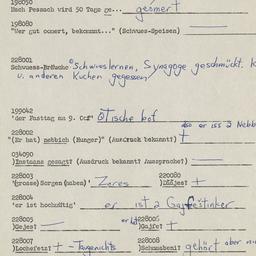 198050
Nach Pessach wird 50 Tage ge... geomert
198080
"Wer gut oomert, bekommt..." (Schwuos-Speisen)
228001
Schwuoss-Bräuche Schwuoslernen, Synagoge geschmückt. K
u. anderen Kuchen gegessen
199042
'der Fasttag am 9. Oof' Tische bof
also er iss a Nebb
228002
"(Er hat) nebbich (Hunger)" (Ausdruck bekannt?) +
034090
)Instans gesagt? (Ausdruck bekannt? Aussprache?)
228003
'(grosse)Sorgen(haben)' Zores
220080
)Dääjes? +
228004
'er ist hochmütig' er ist a Gajfestinker
228005
)Gojes? —
er hat
228006
)Gajfe? +
228007
)Lochefets? + - Taugenichts
228008
)Schmubeni? gehört aber